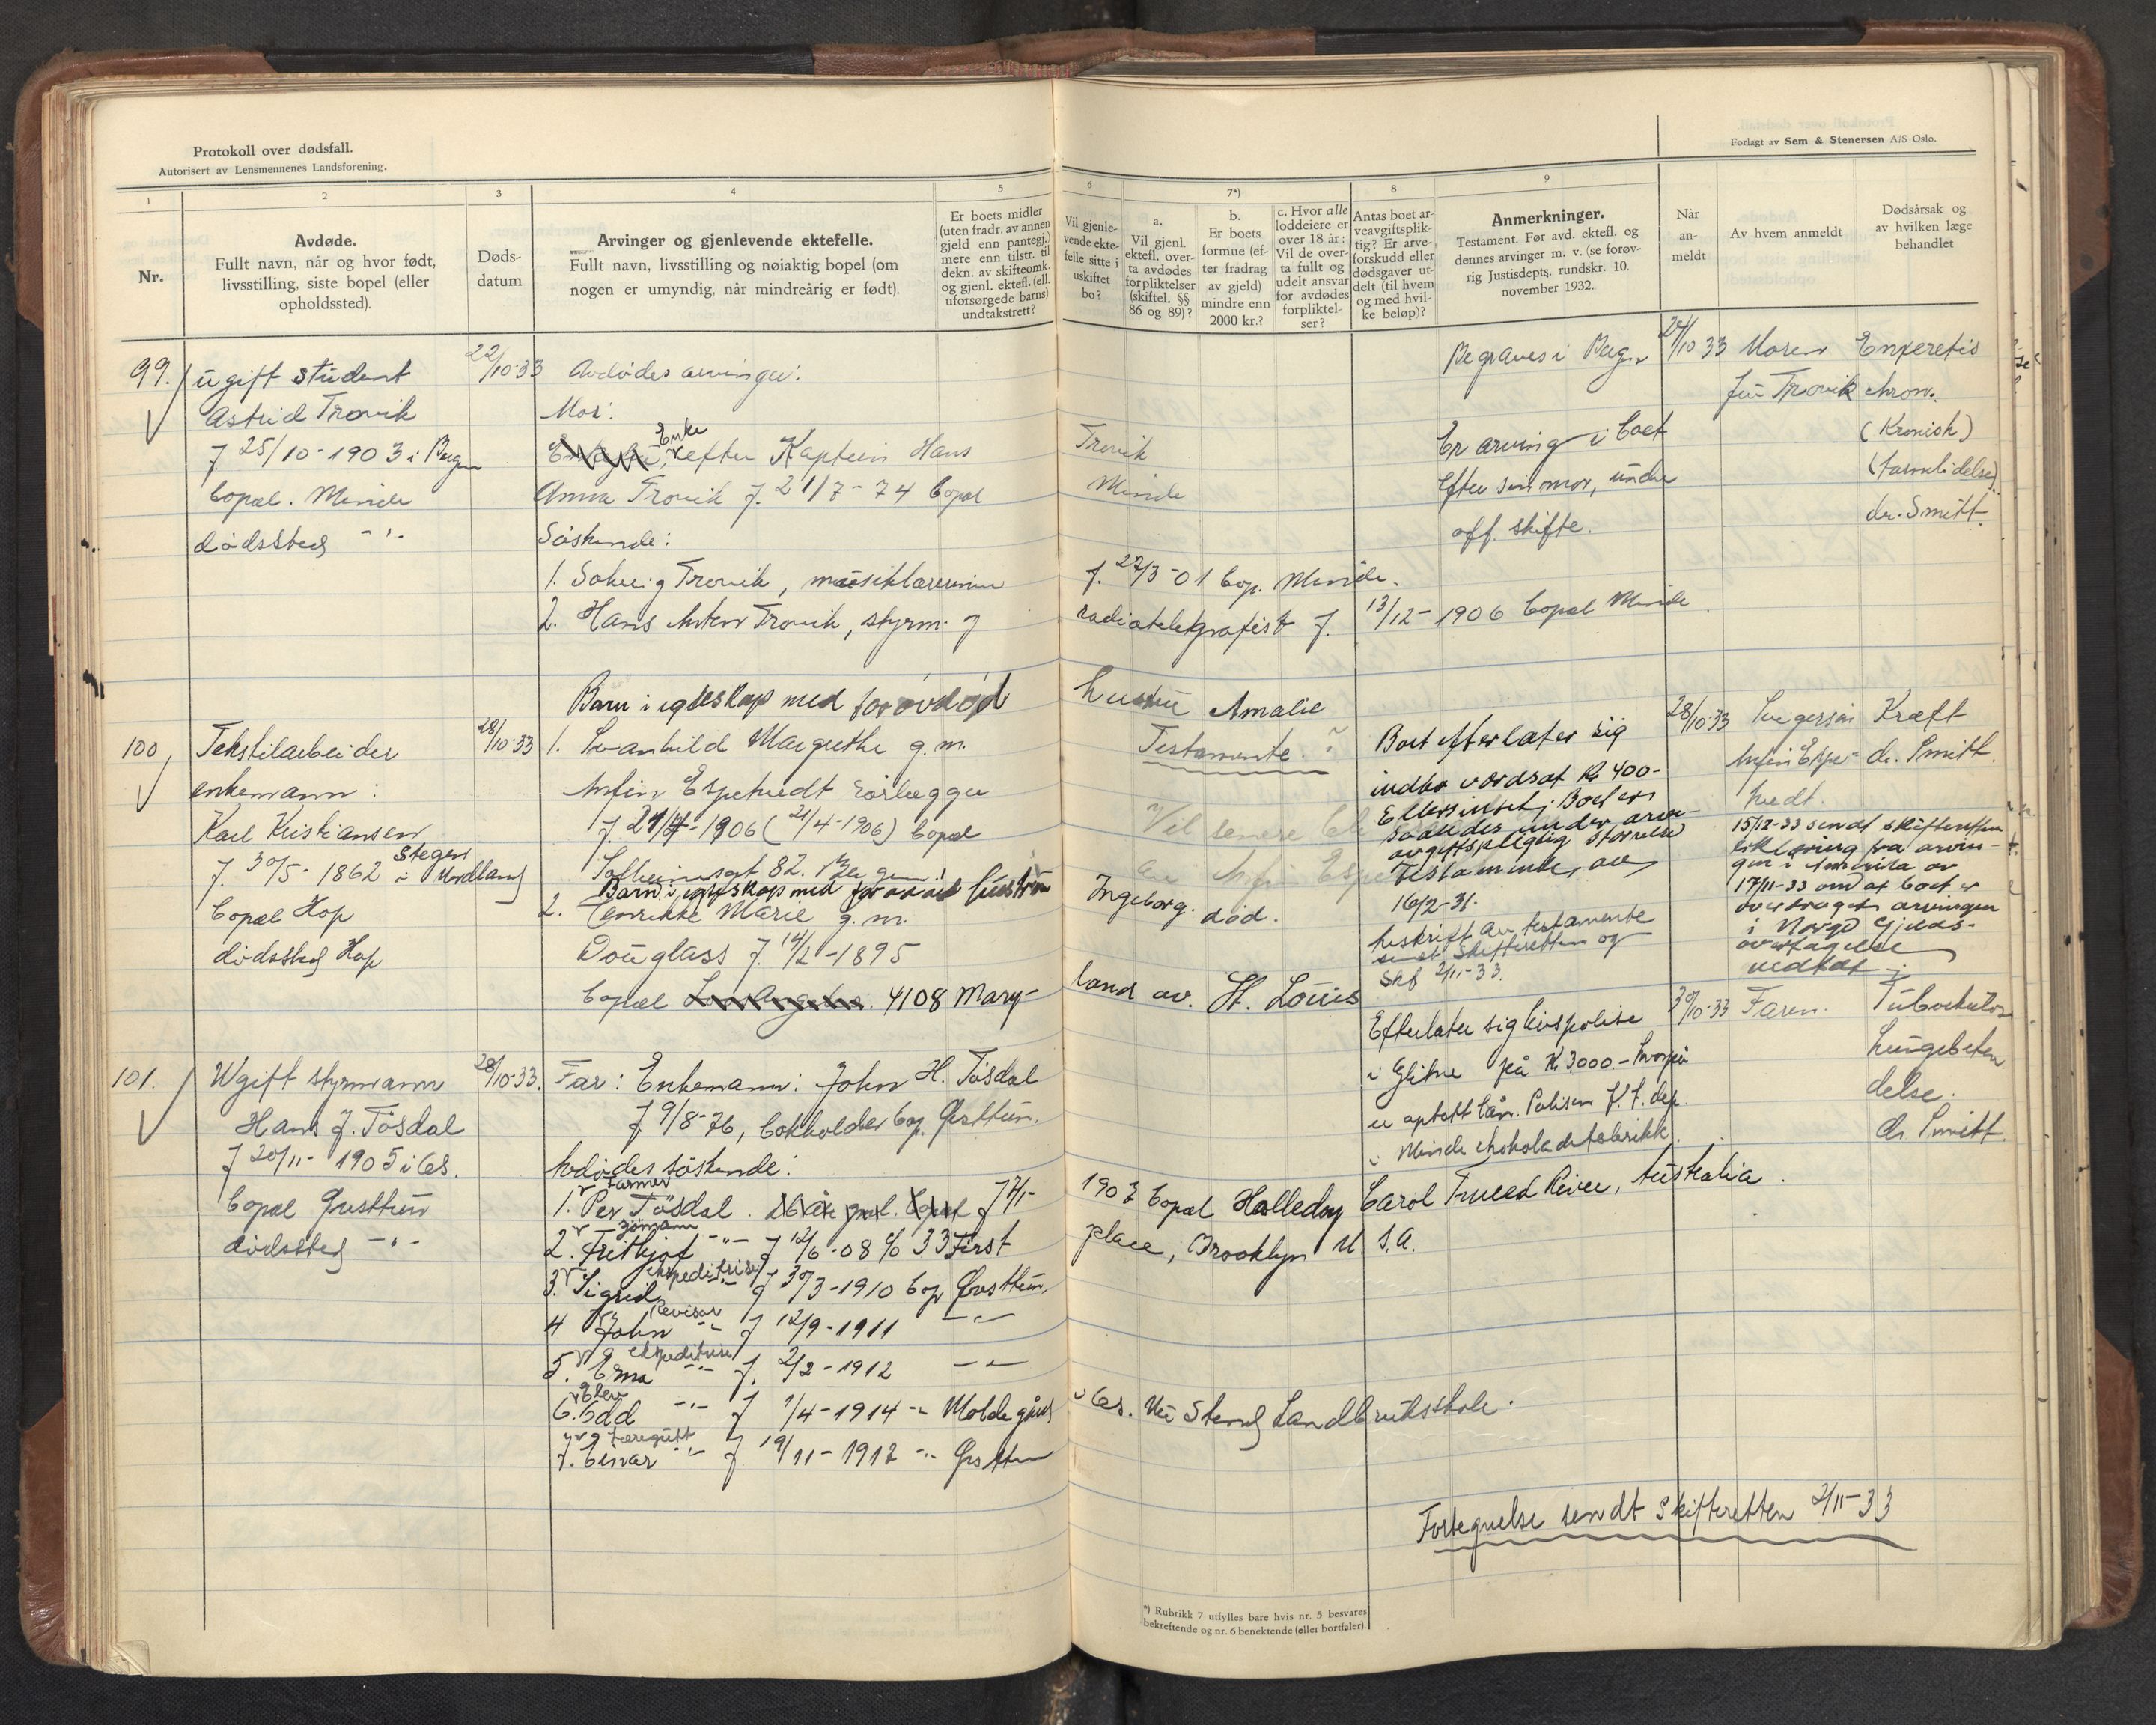 Protokoll over dødsfall.
Autorisert av Lensmennenes Landsforening.
Forlagt av Sem & Stenersen A/S Oslo.
1 2 3 4 5 6 7*) 8 9
Nr.
Avdøde.
Fullt navn, når og hvor født,
livsstilling, siste bopel (eller
opholdssted).
Døds-
datum
Arvinger og gjenlevende ektefelle.
Fullt navn, livsstilling og nøiaktig bopel (om
nogen er umyndig, når mindreårig er født).
Er boets midler
(uten fradr. av annen
gjeld enn pantegj.)
mere enn tilstr. til
dekn. av skifteomk.
og gjenl. ektefl. (ell.
uforsørgede barns)
undtakstrett?
Vil gjenle-
vende ekte-
felle sitte i
uskiftet
bo?
a.
Vil gjenl.
ektefl. over-
ta avdødes
forpliktelser
(skiftel. §§
86 og 89)?
b.
Er boets
formue (ef-
ter fradrag
av gjeld)
mindre enn
2000 kr.?
c. Hvor alle
loddeiere er
over 18 år:
Vil de over-
ta fullt og
udelt ansvar
for avdødes
forpliktel-
ser?
Antas boet ar-
veavgiftsplik-
tig? Er arve-
forskudd eller
dødsgaver ut-
delt (til hvem
og med hvil-
ke beløp)?
Anmerkninger.
Testament. Før avd. ektefl. og
dennes arvinger m. v. (se forøv-
rig Justisdepts. rundskr. 10.
november 1932.
Når
an-
meldt
Av hvem anmeldt
Dødsårsak og
av hvilken læge
behandlet
99.
ugift student
Astrid Trovik
f 25/10-1903 i Bergen
bopæl. Minde
dødssted -"-
22/10-33
Avdødes arvinger:
Mor:
Enke efter Kaptein Hans Trovik
Anna Trovik f. 21/7-74 bopæl Minde
Søskende:
1. Solveig Trovik, musiklærerinne f. 27/3-01 bop. Minde.
2. Hans Anton Trovik, styrm. og radiotelegrafist f. 13/12-1906 bopæl Minde.
Begraves i Bergen
Er arving i boet
efter sin mor, under
off. skifte.
24/10 33
Moren
fru Trovik
chron.
(Kronisk)
(tarmlidelse)
dr. Smitt.
100
Tekstilarbeider
enkemann:
Karl Kristiansen
f. 30/5-1862 i Stegen Nordland
bopæl Hop
dødssted Hop
28/10-33
Barn i egteskap med forovdød hustru Amalie
1. Svanhild Margrethe g. m.
Espetvedt rørlegger
(21/4-1906) bopæl
82. Bergen.
Barn i egteskap med hustru Ingeborg. død.
2. Henrikke Marie g. m.
Douglass f. 14/2-1895
bopæl 4108 Mary-land av. St. Louis
Testamente. ?
Vil senere
Boet efterlater sig
indbo værdsat Kr 400-
Testamente av
16/2-31.
beskrift av testamente
sendt Skifteretten og
Skf 2/11-33.
28/10-33
Svigersøn
Kræft
dr. Smitt.
15/12-33 sendt skifteretten
erklæring fra arvin-
gen i Amerika av
17/11-33 om at boet er
overdraget arvingen
i Norge Gjelds-
overtagelse
vedtat
101.
Ugift styrmann
Hans J. Tøsdal
f 20/11-1905 i Os.
bopæl Øvsttun
dødssted -"-
28/10-33.
Far: Enkemann: John H. Tøsdal
f 9/8-76, bokholder bop. Øvsttun.
Avdødes søskende:
1. Per Tøsdal. Farmer 1903 bopæl Halleday Carol Tweed River, Australia.
2. Frithjof sjømann -"- f 12/6-08 c/o 33 First place, Brooklyn U. S. A.
3. Sigrid ekspeditrise -"- f 30/3-1910 bop Øvsttun.
4 John revisor -"- f 12/9-1911 -"-
5. Erna ekspeditrise -"- f. 2/2-1912 -"-
6. Odd Elev -"- f 1/4-1914 -"- Moldegård i Os. Ved Stend Landbruksskole.
7. Einar -"- f. 19/11-1917 -"- Øvsttun
Efterlater sig livspolise
i Glitne på Kr 3,000.- hvorpå
er optatt lån. Polisen
i Minde chokoladefabrikk.
30/10-33
Faren.
Tuberkuløs
lungebeten
delse.
dr. Smitt.
Fortegnelse sendt Skifteretten 2/11-33
*) Rubrikk 7 utfylles bare hvis nr. 5 besvares
bekreftende og nr. 6 benektende (eller bortfaler)